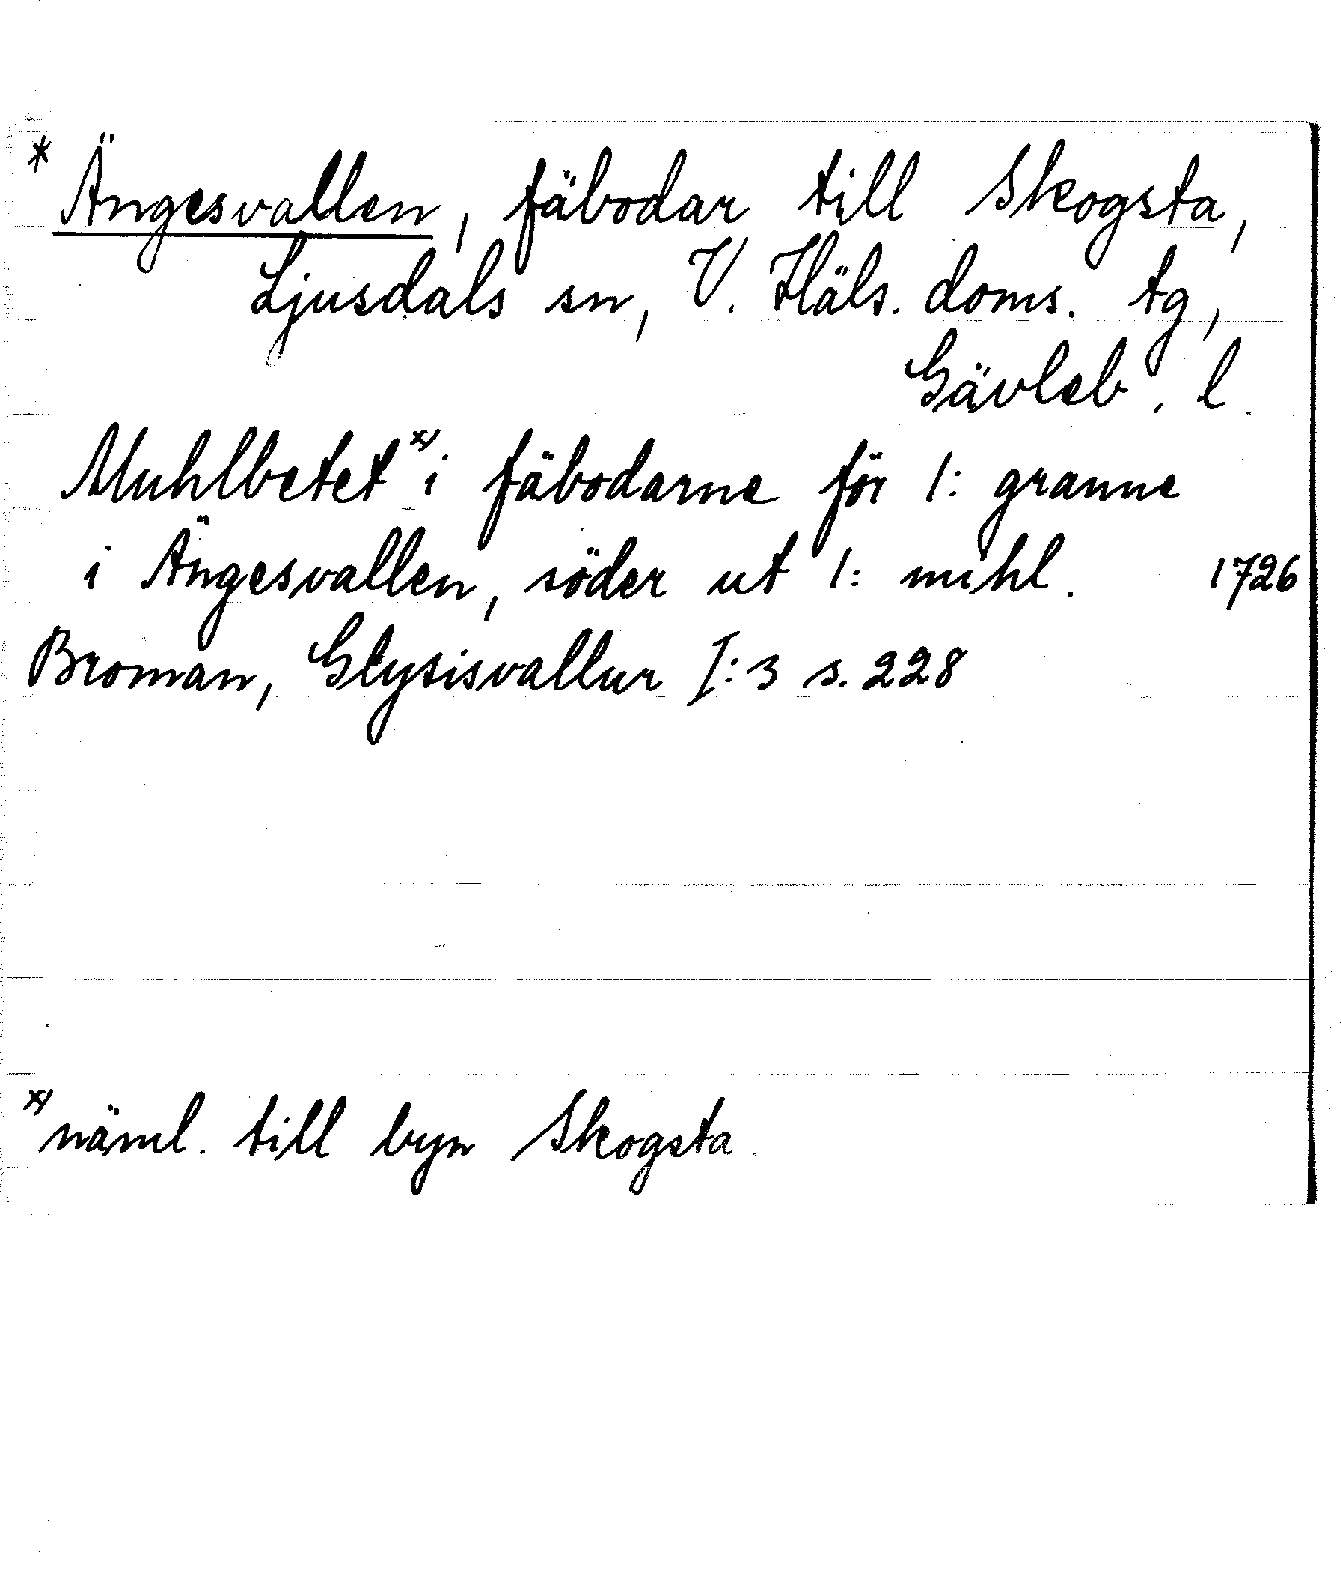 * Ängesvallen, fäbodar till Skogsta,
Ljusdals sn, V. Häls. doms. tg,
Gävleb. l.
Muhlbetet x) i fäbodarne för 1: granne
i Ängesvallen, söder ut 1: mihl. 1726
Broman, Glysisvallur I:3 s. 228
x) näml. till byn Skogsta